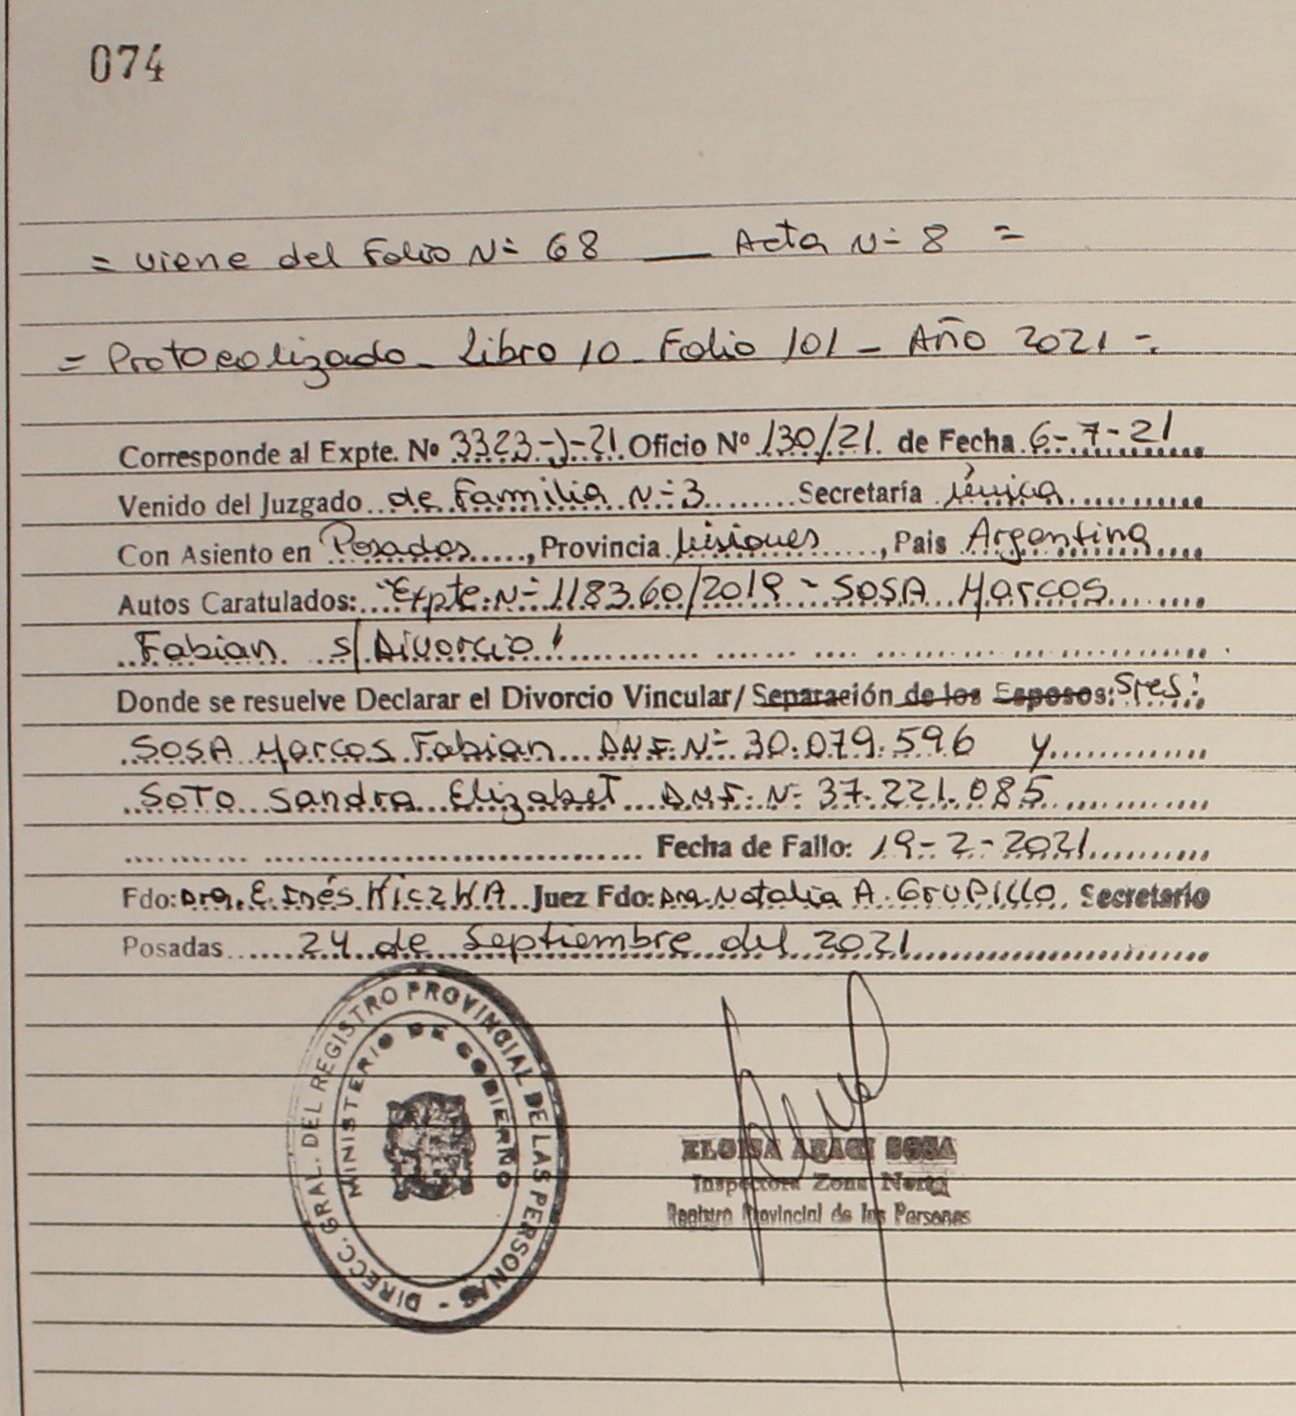 074
= viene del Folio Nº 68 — Acta Nº 8 =
= Protocolizado - Libro 10 - Folio 101 - Año 2021 -.
Corresponde al Expte. Nº 3323-J-21 Oficio Nº 130/21 de Fecha 6-7-21
Venido del Juzgado de Familia Nº 3 Secretaría única
Con Asiento en Posadas, Provincia Misiones, Pais Argentina
Autos Caratulados: "Expte. Nº 118360/2019 - SOSA Marcos
Fabian s/ Divorcio"
Donde se resuelve Declarar el Divorcio Vincular/ Separación de los Esposos: Sres:
SOSA Marcos Fabian DNI. Nº 30.079.596 y
SOTO Sandra Elizabet DNI. Nº 37.221.085
Fecha de Fallo: 19-2-2021
Fdo: Dra. E. Inés KiczKA Juez Fdo: Dra. Natalia A. Grupillo Secretario
Posadas 24 de Septiembre del 2021
DIRECC. GRAL. DEL REGISTRO PROVINCIAL DE LAS PERSONAS -
MINISTERIO DE GOBIERNO
ELOISA ARACI SOSA
Inspectora Zona Norte
Registro Provincial de las Personas